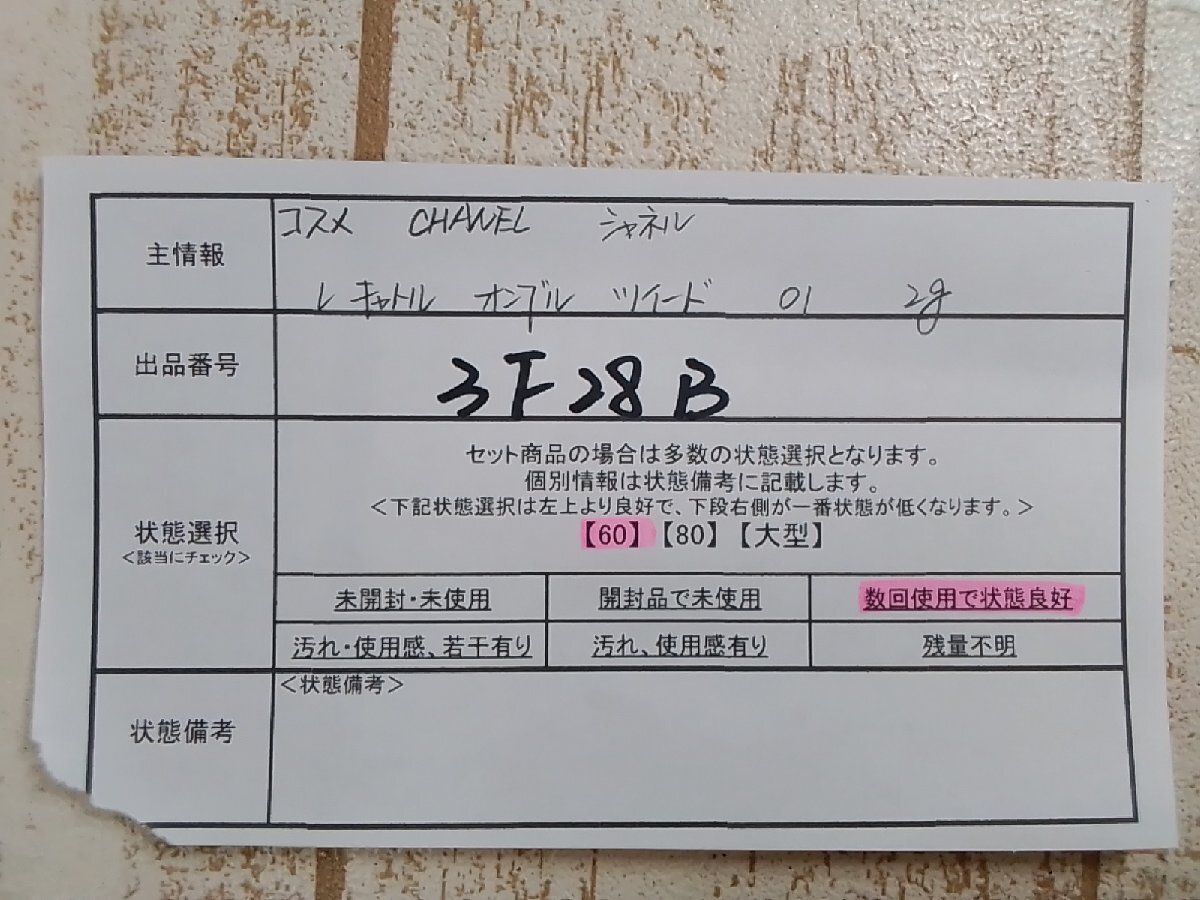 主情報
コスメ CHANEL シャネル
レ キャトル オンブル ツイード 01 2g
出品番号
3F28B
状態選択
<該当にチェック>
セット商品の場合は多数の状態選択となります。
個別情報は状態備考に記載します。
<下記状態選択は左上より良好で、下段右側が一番状態が低くなります。>
【60】【80】【大型】
未開封・未使用 開封品で未使用 数回使用で状態良好
汚れ・使用感、若干有り 汚れ、使用感有り 残量不明
状態備考
<状態備考>